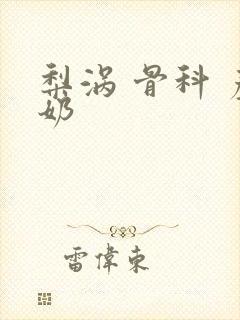 梨涡 骨科
奶
雷偉東